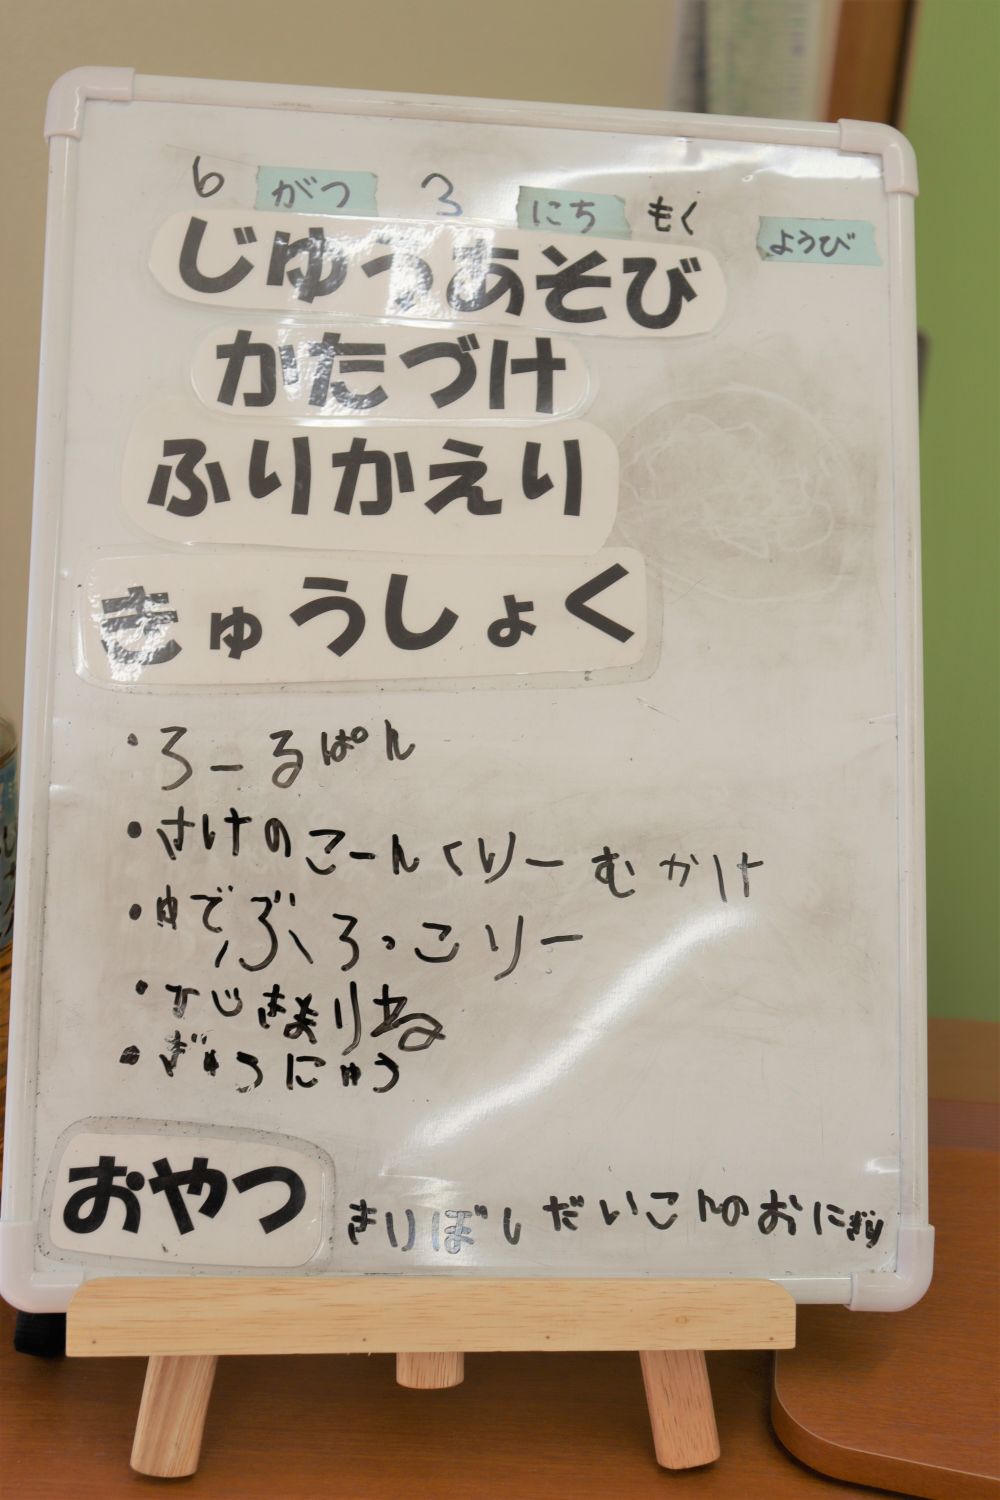 6 がつ 3 にち もく ようび
じゆうあそび
かたづけ
ふりかえり
きゅうしょく
・ろーるぱん
・さけのこーんくりーむかけ
・ゆでぶろっこりー
・ひじきまりね
・ぎゅうにゅう
おやつ きりぼしだいこんのおにぎり